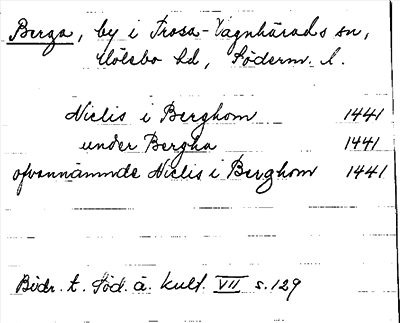 Berga, by i Trosa-Vagnhärads sn,
Hölebo hd, Söderm. l.
Niclis i Berghom 1441
under Bergha 1441
ofvannämnde Niclis i Berghom 1441
Bidr. t. Söd. ä. kult. VII s. 129